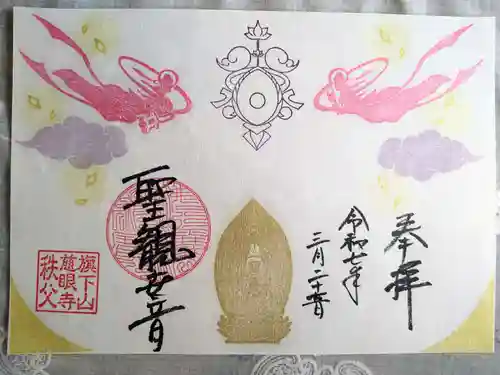 奉拝
令和七年
三月二十一日
聖観世音
旗下山
慈眼寺
秩父